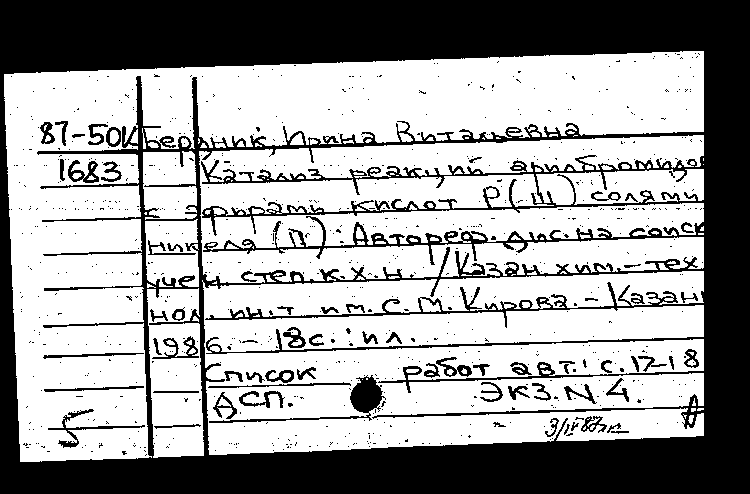 87-50К Бердник, Ирина Витальевна
1683 Катализ реакций арилбромидов
с эфирами кислот Р(III) солями
никеля (II): Автореф. дис. на соиск.
учен. степ. к.х.н. / Казан. хим.-тех-
нол. ин-т им. С.М. Кирова. - Казань
1986. - 18с. : ил.
Список работ авт.: с.17-18
ДСП. ЭКЗ. N 4.
5 3/IV 87